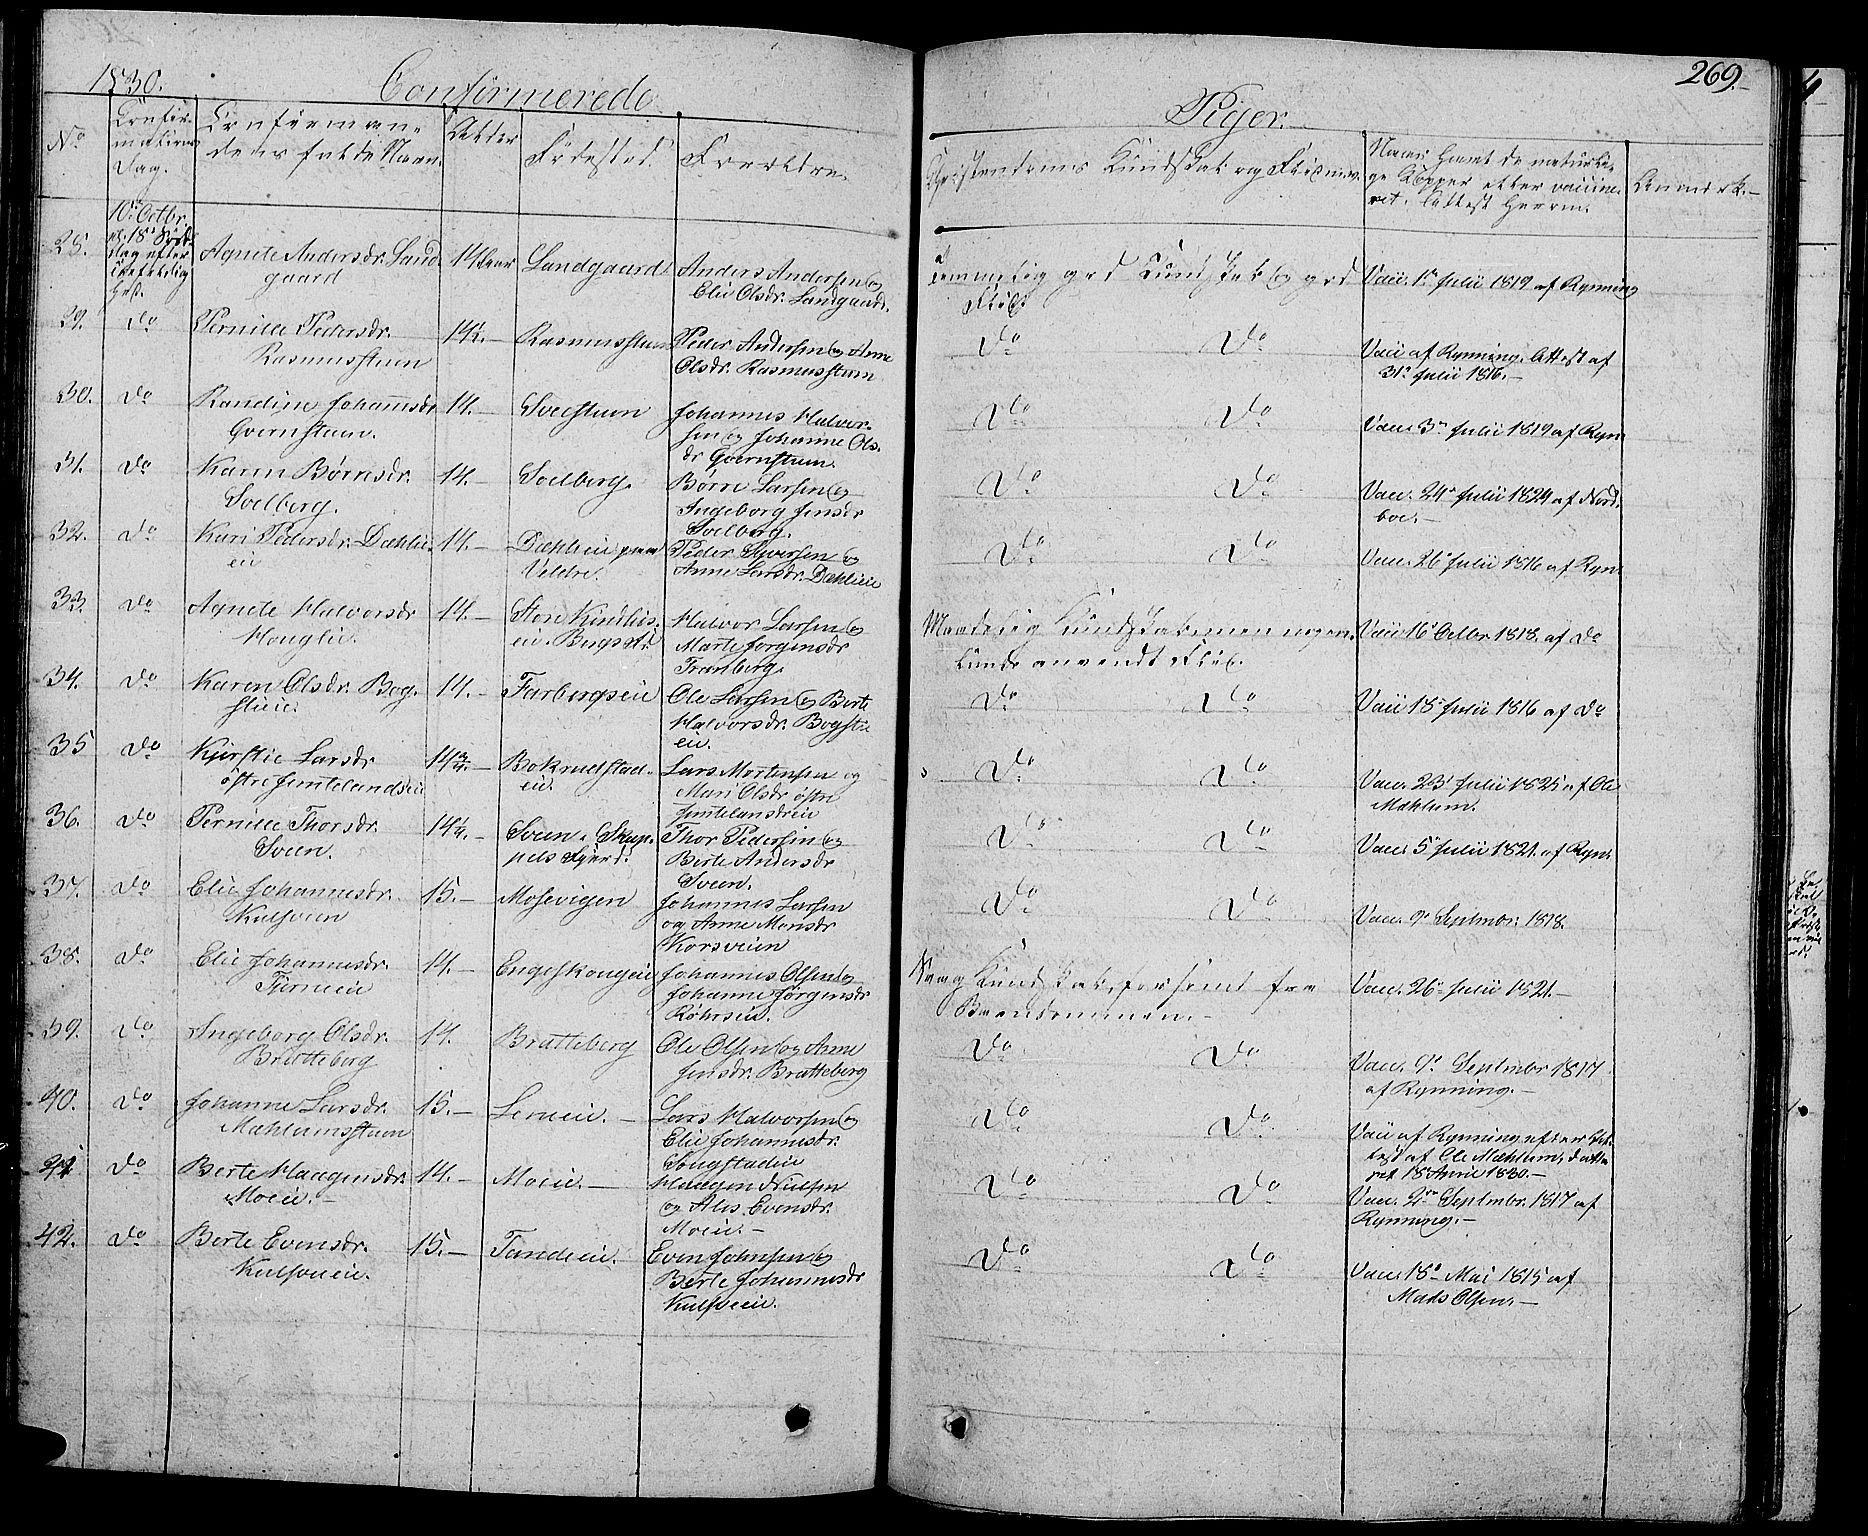 1830.
Confirmerede
Piger.
269.
No
Confir-
mations
Dag.
Confirman-
dens fulde Navn.
Alder
Fødested.
Forældre.
Christendoms Kundskab og Flid
Naar havt de naturli-
ge Kopper eller vaccine-
ret. Attest herom.
Anmærk.
10de Octbr.
18de Søn-
dag efter
Trefoldig
hed.
Agnete Andersdr. Land-
gaard
14 Aar
Landgaard
Anders Andersen og
Elie Olsdr. Landgaard.
Temmelig god Kundskab og god
Flid
Vacc. 1te Julii 1819 af Rynning
29.
Do
Pernille Pedersdr.
Rasmusstuen
14½.
Rasmusstuen
Peder Andersen og Anne
Olsdr. Rasmusstuen
Do
Do
Vacc af Rynning. Attest af
31te Julii 1816.-
30.
Do
Randine Johannesdr
Qvernstuen.
14.
Sveestuen
Johannes Halvor-
sen og Johanne Ols-
dr Qvernstuen.
Do
Do
Vacc. 3die Julii 1819 af Ryn.
31.
Do
Karen Børresdr.
Soelberg.
14.
Soelberg.
Børre Larsen og
Ingeborg Jensdr
Soelberg.
Do
Do
Vacc. 24de Julii 1824 af Nord-
boe.-
32.
Do
Kari Pedersdr. Dæhlie-
eie
14.
Dæhlieeie paa
Veldre.
Peder Syversen og
Anne Larsdr. Dæhlieeie
Do
Do
Vacc. 26de Julii 1816 af Ryn.
33.
Do
Agnete Halvorsdr
Houglie.
14.
Store Kindlus-
eie
Halvor Larsen og
Marte Jørgensdr
Tranberg.
Maadelig Kundskab, men nogen-
lunde anvendt Flid.
Vacc 16de Octbr 1818. af Do
34.
Do
Karen Olsdr. Bog-
stieie.
14.
Farbergseie
Ole Larsen og Berte
Halvorsdr. Bogsti-
eie.
Do
Do
Vacc 18de Julii 1816 af Do
35
Do
Kjerstie Larsdr
østre Jemtelandseie
14¾.
Bokrudstad-
eie.
Lars Mortensen og
Mari Olsdr østre
Jemtelandseie
Do
Do
Vacc. 23de Julii 1825 af Ole
Mæhlum.
36.
Do
Pernille Thorsdr.
Sveen.
14¼.
Sveen
Thor Pedersen og
Berte Andersdr
Sveen.
Do
Do
Vacc. 5te Julii 1821. af Ryn.
37.
Do
Elie Johannesdr.
Kulsveen
15.
Mosevigen
Johannes Larsen
og Anne Monsdr
Korsveien
Do
Do
Vacc. 9de Septmbr. 1818.
38.
Do
Elie Johannesdr.
Furueeie
14.
Engeskougeie
Johannes Olsen og
Johanne Jørgensdr
Røhrseie.
Svag Kundskab, forsømt fra
Barndommen.-
Vacc. 26de Julii 1821.-
39.
Do
Ingeborg Olsdr.
Bratteberg
14.
Bratteberg
Ole Olsen og Anne
Jensdr. Bratteberg
Do
Do
Vacc. 9de Septmbr 1817
af Rynning.-
40.
Do
Johanne Larsdr.
Mæhlumsstuen
15.
Lerueie.
Lars Halvorsen og
Elie Johannesdr.
Sougstadeie
Do
Do
Vacc af Rynning efter At-
test af Ole Mæhlum, datte-
ret 18de April 1830.-
41
Do
Berte Haagensdr.
Moeie.-
14.
Moeie.-
Haagen Trulsen
og Alis Evensdr.
Moeie.-
Do
Do
Vacc. 2den Septmbr. 1817 af
Rynning.-
42.
Do
Berte Evensdr.
Kulsveeie.
15.
Tandeeie.
Even Johnsen og
Berte Johannesdr
Kulsveeie.
Do
Do
Vacc. 18de Mai 1815 af
Mads Olsen.-